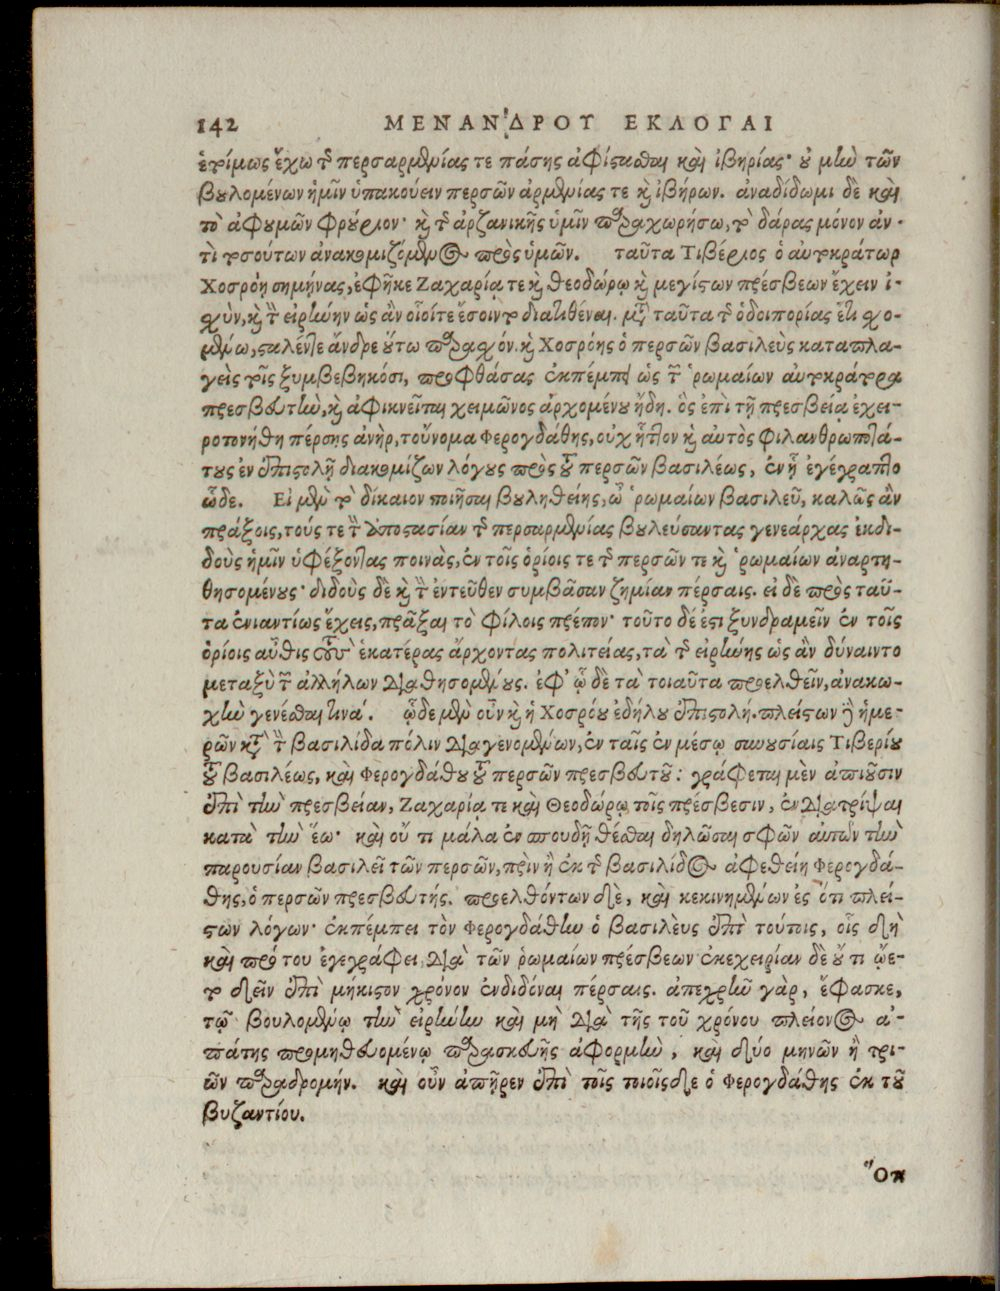 142 ΜΕΝΑΝΔΡΟΥ ΕΚΛΟΓΑΙ
ἑτοίμως ἔχω τῆς περσαρμενίας τε πάσης ἀφίστασθαι καὶ ἰβηρίας· οὐ μὴν τῶν
βουλομένων ἡμῖν ὑπακούειν περσῶν ἀρμενίας τε καὶ ἰβήρων. ἀναδίδωμι δὲ καὶ
τὸ ἀφουμῶν φρούριον· καὶ τῆς ἀρζανικῆς ὑμῖν παραχωρήσω, τὸ δάρας μόνον ἀν-
τὶ τοσούτων ἀνακομιζόμενος πρὸς ὑμῶν. ταῦτα Τιβέριος ὁ αὐτοκράτωρ
Χοσρόῃ σημήνας, ἐφῆκε Ζαχαρίᾳ τε καὶ Θεοδώρῳ καὶ μεγίστων πρέσβεων ἔχειν ἰ-
χὺν, καὶ τὴν εἰρήνην ὡς ἂν οἷοίτε ἔσοιντο διατιθέναι. μετὰ ταῦτα τῆς ὁδοιπορίας ἔτι χο-
μένω, σταλέντε ἄνδρε οὕτω παραχόν. καὶ Χοσρόης ὁ περσῶν βασιλεὺς καταπλα-
γεὶς τοῖς ξυμβεβηκόσι, προφθάσας ἐκπέμπει ὡς τὸν ῥωμαίων αὐτοκράτορα
πρεσβευτὴν, καὶ ἀφικνεῖται χειμῶνος ἀρχομένου ἤδη. ὃς ἐπὶ τῇ πρεσβείᾳ ἐχει-
ροτονήθη πέρσης ἀνὴρ, τοὔνομα Φερογδάθης, οὐχ ἧττον καὶ αὐτὸς φιλανθρωποτά-
τους ἐν ἐπιστολῇ διακομίζων λόγους πρὸς τοῦ περσῶν βασιλέως, ἐν ᾗ ἐγέγραπτο
ὧδε. Εἰ μὲν τὸ δίκαιον ποιῆσαι βουληθείης, ὦ ῥωμαίων βασιλεῦ, καλῶς ἂν
πράξοις, τούς τε τὴν ἀποστασίαν τῆς περσαρμενίας βουλεύσαντας γενεάρχας ἐκδι-
δοὺς ἡμῖν ὑφέξοντας ποινὰς, ἐν τοῖς ὁρίοις τε τῆς περσῶν τε καὶ ῥωμαίων ἀναρτη-
θησομένους· διδοὺς δὲ καὶ τὴν ἐντεῦθεν συμβᾶσαν ζημίαν πέρσαις. εἰ δὲ πρὸς ταῦ-
τα ἐνιαντίως ἔχεις, πρᾶξαι τὸ φίλοις πρέπον· τοῦτο δέ ἐστι ξυνδραμεῖν ἐν τοῖς
ὁρίοις αὖθις τοὺς ἑκατέρας ἄρχοντας πολιτείας, τὰ τῆς εἰρήνης ὡς ἂν δύναιντο
μεταξὺ τῶν ἀλλήλων διαθησομένους. ἐφ' ᾧ δὲ τὰ τοιαῦτα προελθεῖν, ἀνακω-
χὴν γενέσθαι τινά. ὧδε μὲν οὖν καὶ ἡ Χοσρόου ἐδήλου ἐπιστολή. πλείστων δὲ ἡμε-
ρῶν κατὰ τὴν βασιλίδα πόλιν διαγενομένων, ἐν ταῖς ἐν μέσῳ συνουσίαις Τιβερίου
τοῦ βασιλέως, καὶ Φερογδάθου τοῦ περσῶν πρεσβευτοῦ: γράφεται μὲν ἀπιοῦσιν
ἐπὶ τὴν πρεσβείαν, Ζαχαρίᾳ τε καὶ Θεοδώρῳ τοῖς πρέσβεσιν, ἐνδιατρίψαι
κατὰ τὴν ἕω· καὶ οὔ τι μάλα ἐν σπουδῇ θέσθαι δηλῶσαι σφῶν αὐτῶν τὴν
παρουσίαν βασιλεῖ τῶν περσῶν, πρὶν ἢ ἐκ τῆς βασιλίδος ἀφεθείη Φερογδά-
θης, ὁ περσῶν πρεσβευτής. προελθόντων δὲ, καὶ κεκινημένων ἐς ὅτι πλεί-
στων λόγων· ἐκπέμπει τὸν Φερογδάθην ὁ βασιλεὺς ἐπὶ τούτοις, οἷς δὴ
καὶ πρό του ἐγεγράφει διὰ τῶν ῥωμαίων πρέσβεων ἐκεχειρίαν δὲ οὔ τι ᾤε-
το δεῖν ἐπὶ μήκιστον χρόνον ἐνδιδόναι πέρσαις. ἀπεχρῆν γὰρ, ἔφασκε,
τῷ βουλομένῳ τὴν εἰρήνην καὶ μὴ διὰ τῆς τοῦ χρόνου πλείονος ἀ-
πάτης προμηθευομένῳ παρασκευῆς ἀφορμὴν, καὶ δύο μηνῶν ἢ τρι-
ῶν παραδρομήν. καὶ οὖν ἀπῆρεν ἐπὶ τοῖς τοιοῖσδε ὁ Φερογδάθης ἐκ τοῦ
βυζαντίου.
Ὅτι